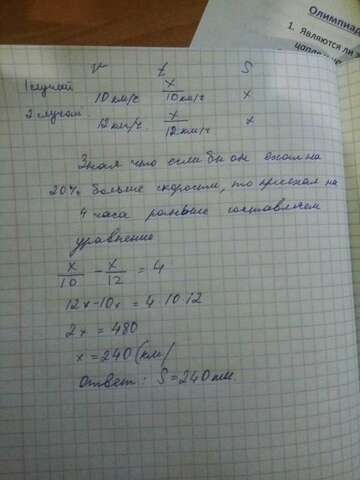 Олимпиад
1. Являются ли
v t S
1 случай 10 км/ч x/10 км/ч x
2 случай 12 км/ч x/12 км/ч x
Зная что если бы он ехал на
20% больше скорости, то приехал на
4 часа раньше составляем
уравнение
x/10 - x/12 = 4
12x-10x = 4 10 12
2x = 480
x = 240 (км)
Ответ: S = 240 км